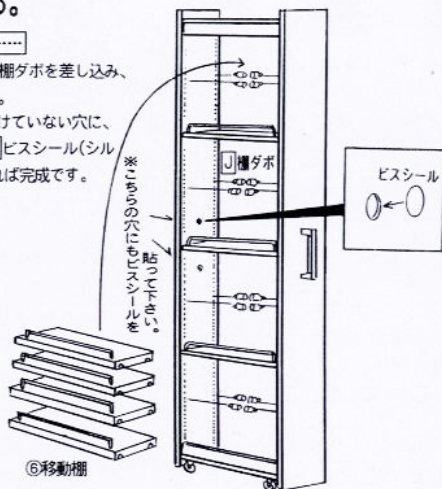 る。
棚ダボを差し込み、
。
けていない穴に、
ビスシール(シル
れば完成です。
J棚ダボ
※こちらの穴にもビスシールを
貼って下さい。
ビスシール
⑥移動棚